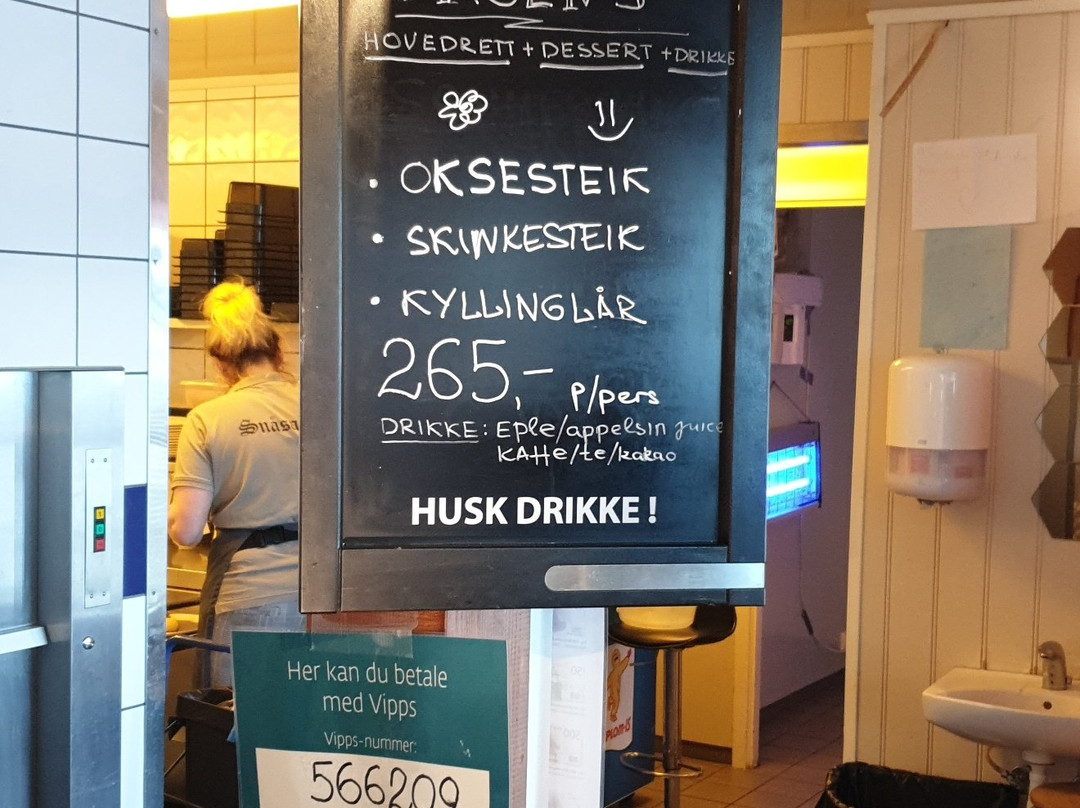 HOVEDRETT + DESSERT + DRIKKE
• OKSESTEIK
• SKINKESTEIK
• KYLLINGLÅR
265,- p/pers
DRIKKE: Eple/appelsin juice
KAffe/te/kakao
HUSK DRIKKE!
Snåsa
Her kan du betale
med Vipps
Vipps-nummer:
566209